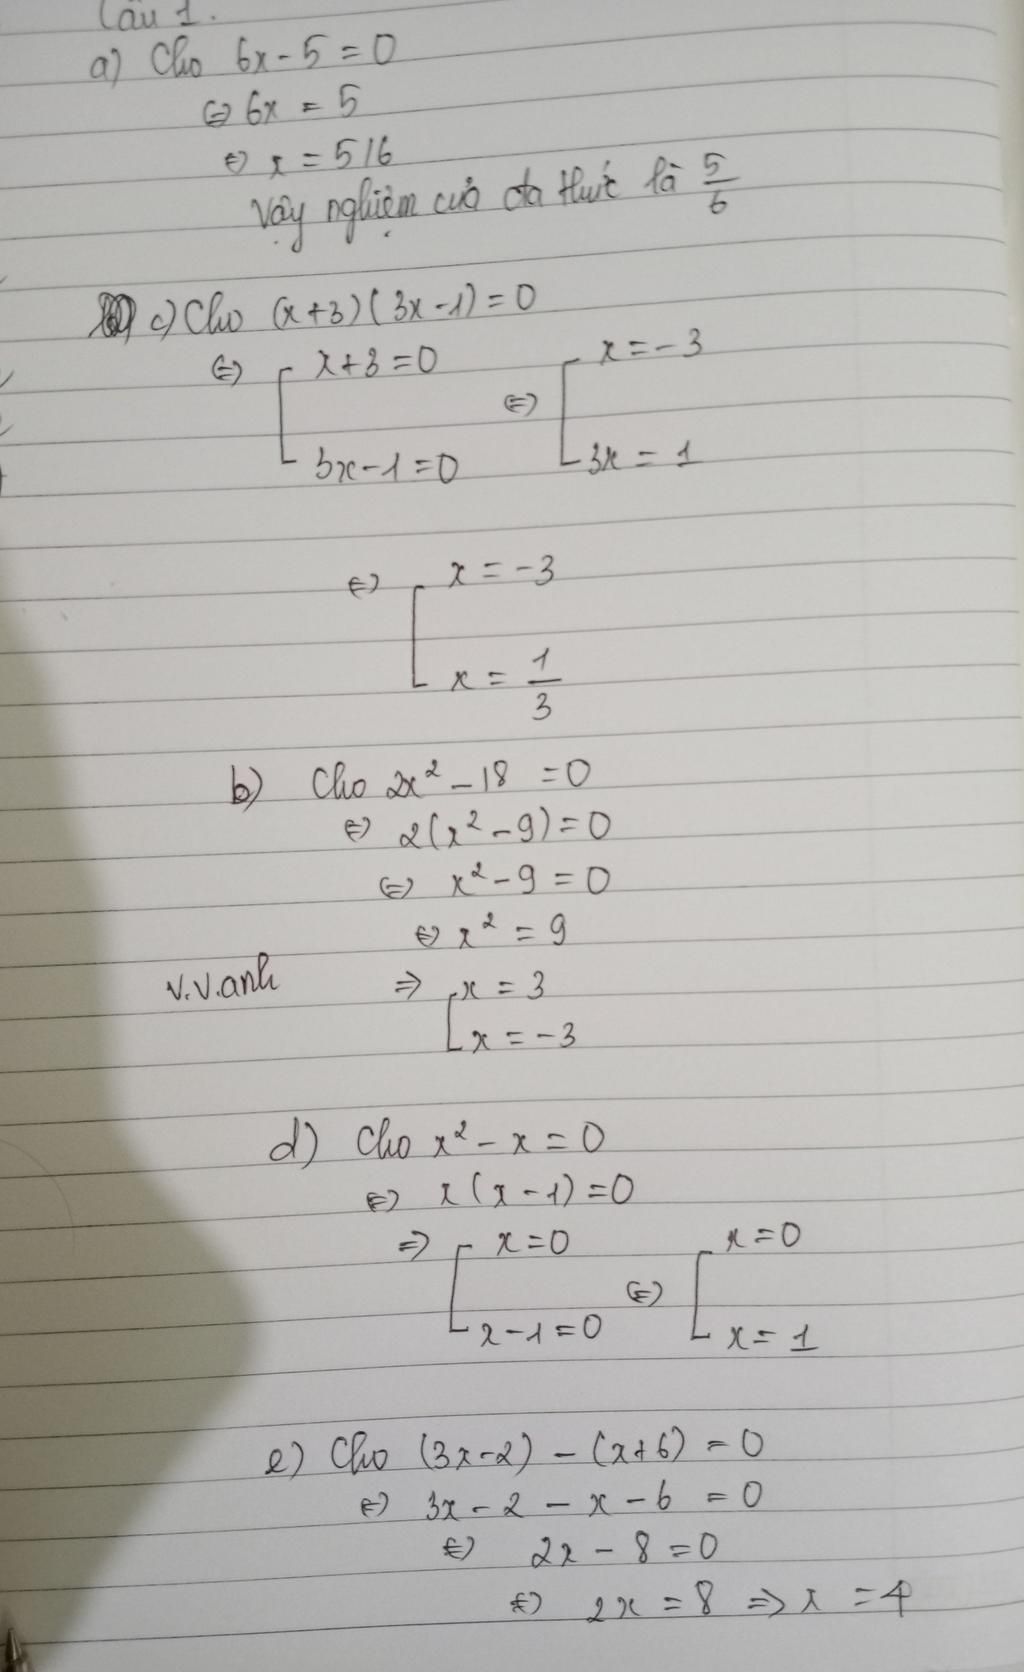 Câu 1.
a) Cho 6x - 5 = 0
⇔ 6x = 5
⇔ x = 5/6
Vậy nghiệm của đa thức là 5/6
c) Cho (x+3)(3x-1) = 0
⇔ [ x+3 = 0 ⇔ [ x = -3
3x-1 = 0 3x = 1
⇔ [ x = -3
x = 1/3
b) Cho 2x² - 18 = 0
⇔ 2(x² - 9) = 0
⇔ x² - 9 = 0
⇔ x² = 9
v.v.anh ⇒ [ x = 3
x = -3
d) Cho x² - x = 0
⇔ x(x-1) = 0
⇒ [ x = 0 ⇔ [ x = 0
x - 1 = 0 x = 1
e) Cho (3x-2) - (x+6) = 0
⇔ 3x - 2 - x - 6 = 0
⇔ 2x - 8 = 0
⇔ 2x = 8 ⇒ x = 4